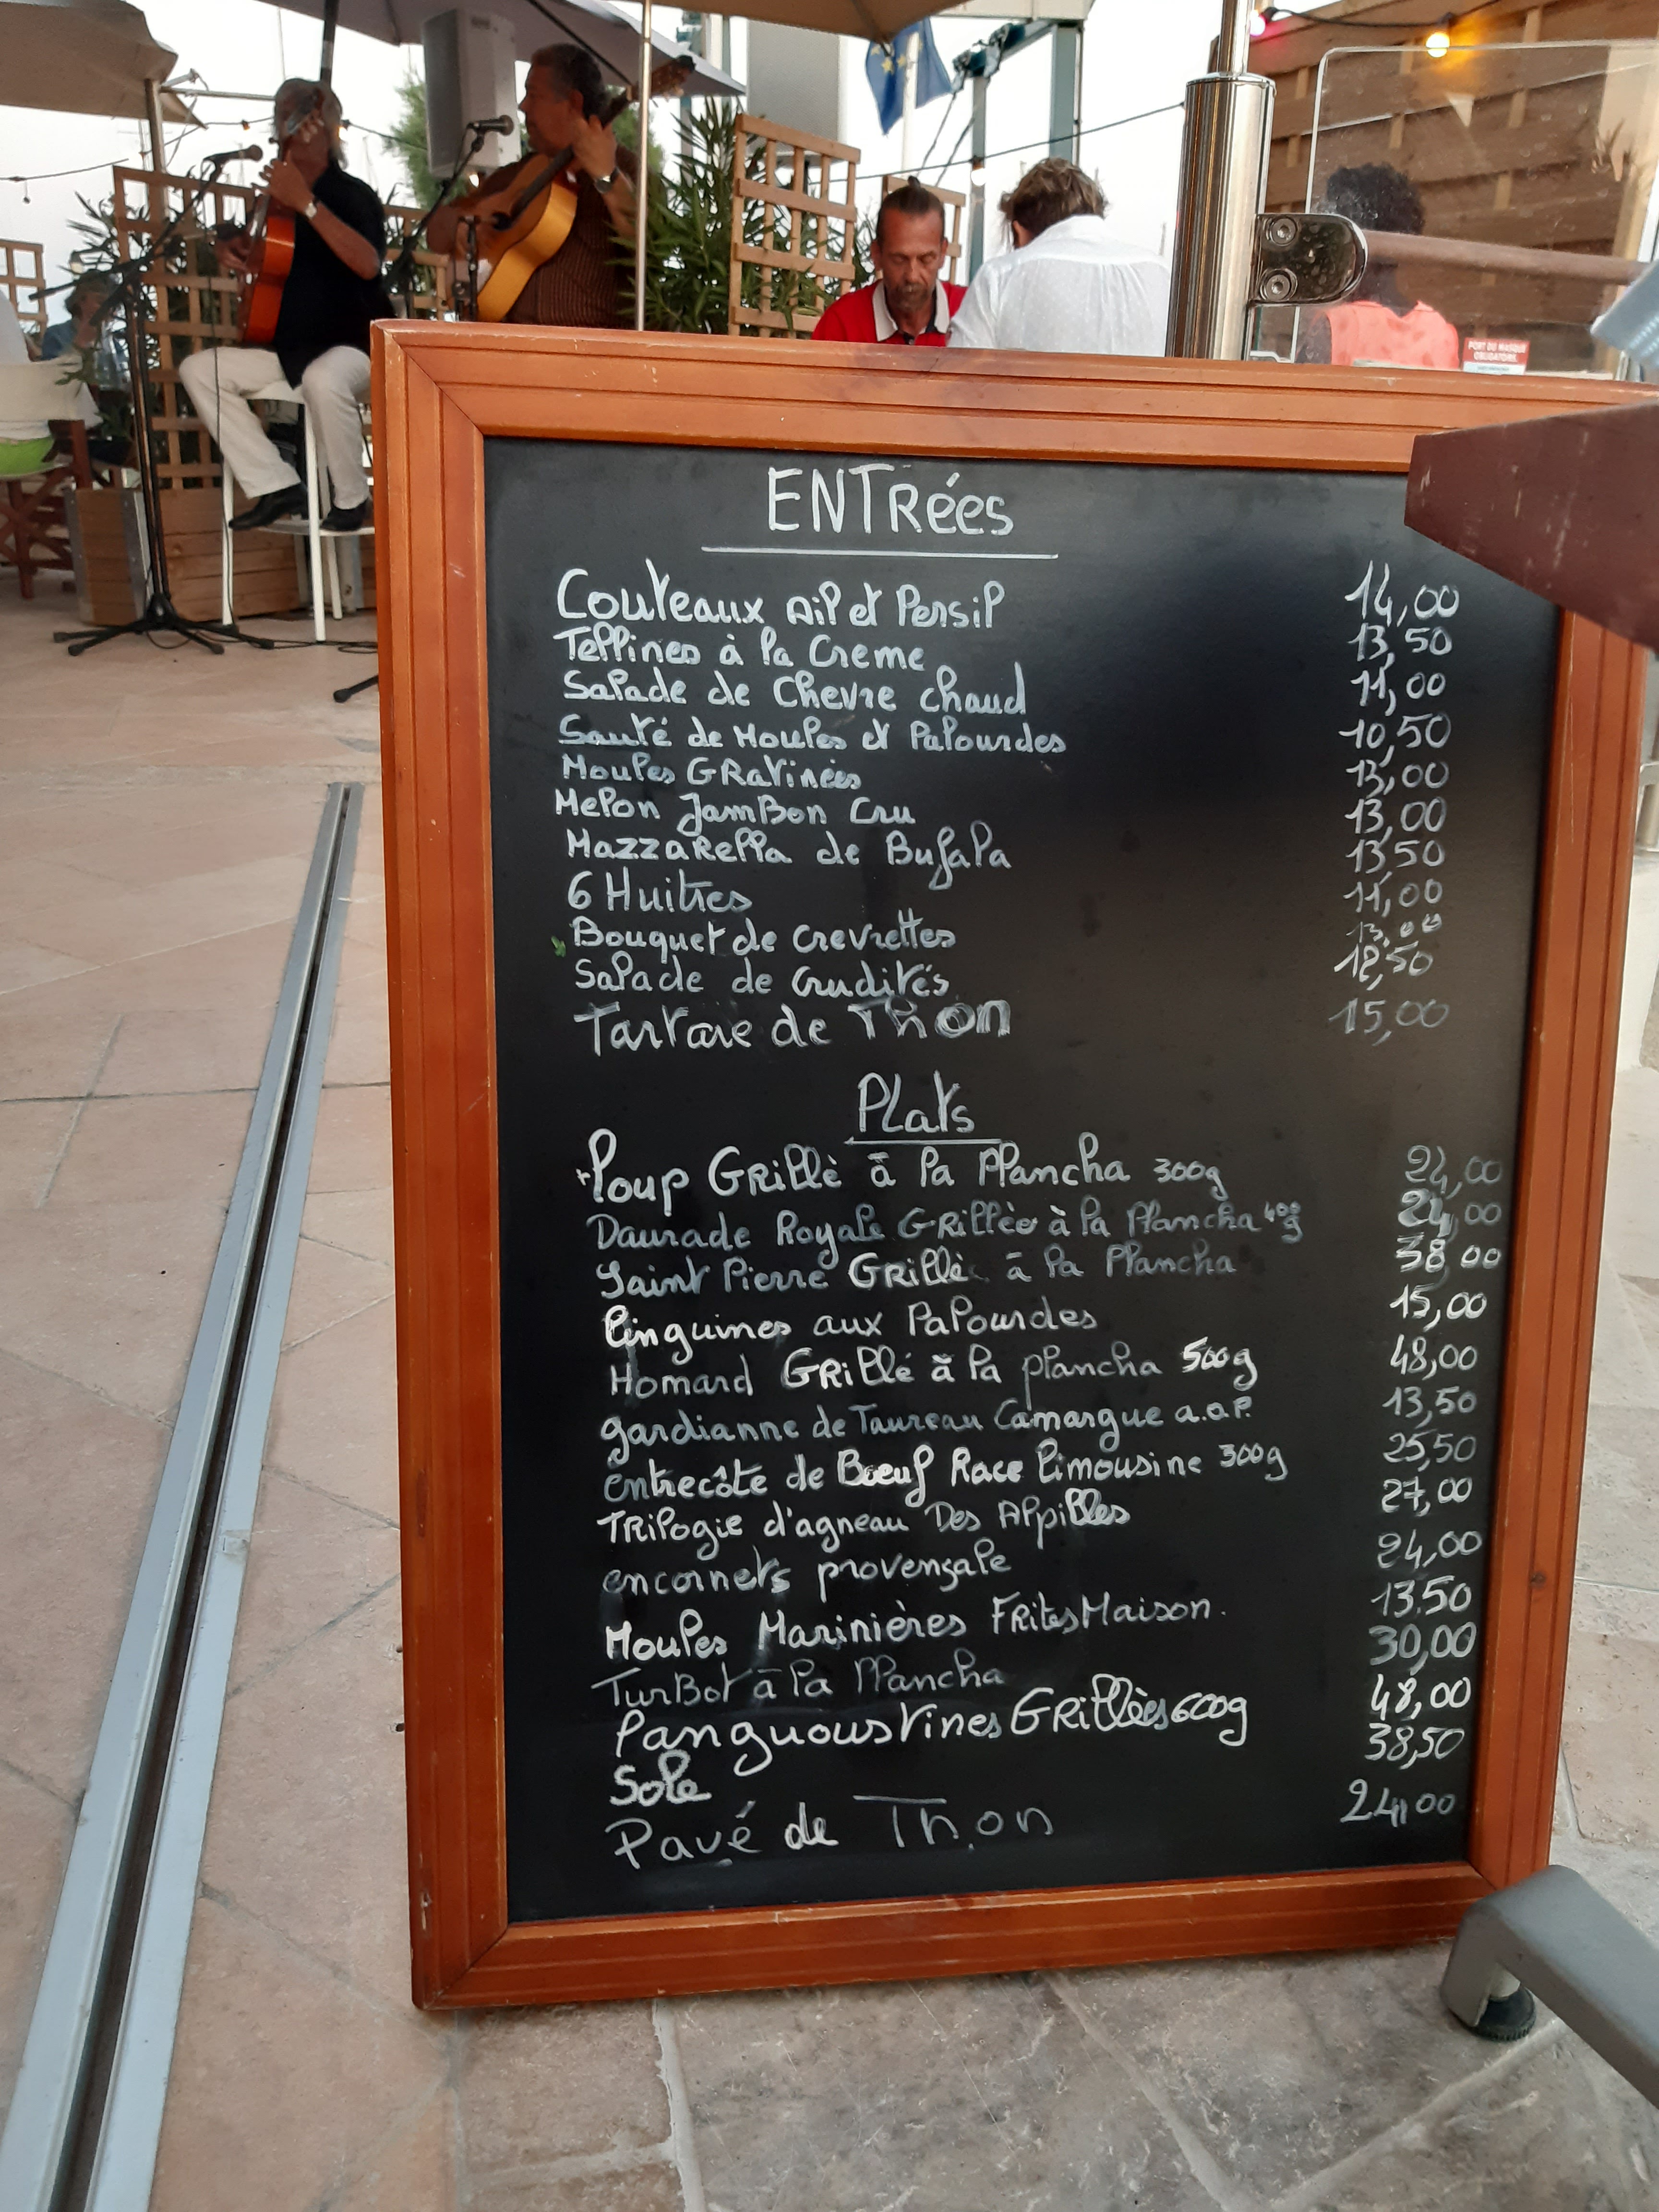 PORT DU MASQUE
OBLIGATOIRE
ENTRées
Couteaux Ail et Persil 14,00
Tellines à la Creme 13,50
Salade de Chevre chaud 11,00
Sauté de Moules et Palourdes 10,50
Moules GRatinées 13,00
Melon JamBon Cru 13,00
MazzaRella de Bufala 13,50
6 Huitres 11,00
Bouquet de crevettes 13,00
Salade de Crudités 12,50
Tartare de Thon 15,00
PLats
Loup GRillè à la Plancha 300g 24,00
Daurade Royale GRillée à la Plancha 400g 24,00
Saint Pierre GRillè à la Plancha 38,00
Linguines aux Palourdes 15,00
Homard GRillé à la plancha 500g 48,00
gardianne de Taureau Camargue a.o.P. 13,50
entrecôte de Bœuf Race Limousine 300g 25,50
TRilogie d'agneau Des Alpilles 27,00
encornets provençale 24,00
Moules Marinières FRites Maison. 13,50
TurBot à la Plancha 30,00
Langoustines GRillèes 600g 48,00
Sole 38,50
Pavé de Thon 24,00